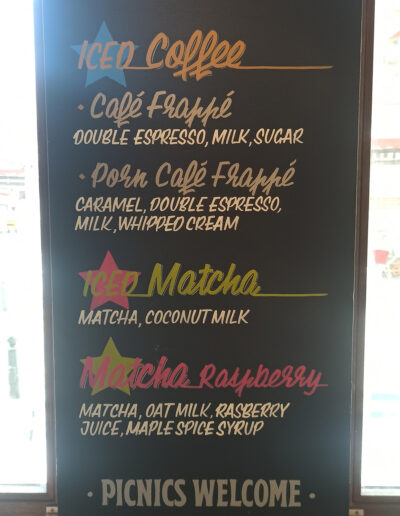 ICED Coffee
• Café Frappé
DOUBLE ESPRESSO, MILK, SUGAR
• Porn Café Frappé
CARAMEL, DOUBLE ESPRESSO,
MILK, WHIPPED CREAM
ICED Matcha
MATCHA, COCONUT MILK
Matcha Raspberry
MATCHA, OAT MILK, RASBERRY
JUICE, MAPLE SPICE SYRUP
• PICNICS WELCOME •